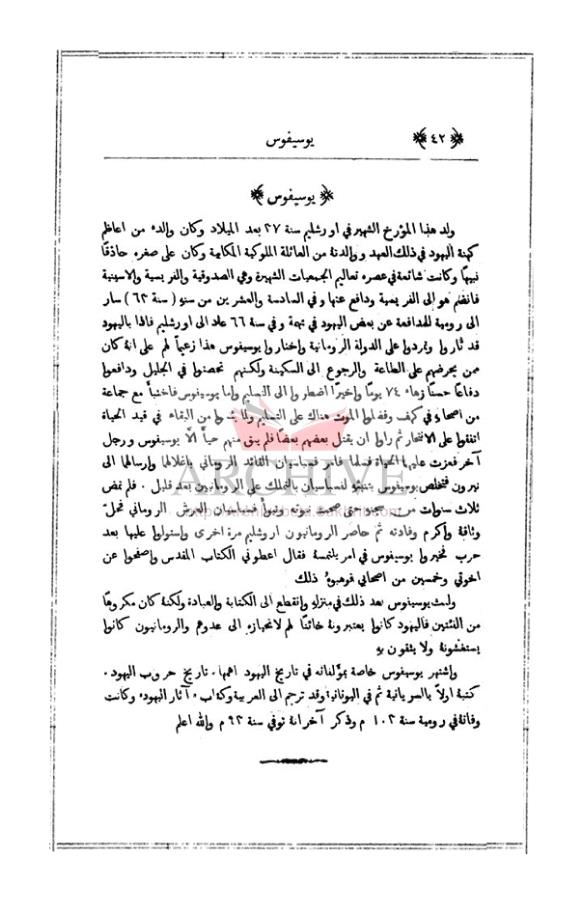 ﴿ ٤٢ ﴾ يوسيفوس
﴿ يوسيفوس ﴾
ولد هذا المؤرخ الشهير في اورشليم سنة ٣٧ بعد الميلاد وكان والده من اعاظم
كهنة اليهود في ذلك العهد ووالدتة من العائلة الملوكية المكابية وكان على صغره حاذقًا
نبيهًا وكانت شائعة في عصره تعاليم الجمعيات الشهيرة وهي الصدوقية والفريسية والاسينية
فانضم هو الى الفريسية ودافع عنها وفي السادسة والعشرين من سنو (سنة ٦٣) سار
الى رومية للمدافعة عن بعض اليهود في تهمة وفي سنة ٦٦ عاد الى اورشليم فاذا باليهود
قد ثاروا وتمردوا على الدولة الرومانية واختاروا يوسيفوس هذا زعيمًا لهم على انة كان
ممن يحرضهم على الطاعة والرجوع الى السكينة ولكنهم تحصنوا في الجليل ودافعوا
دفاعًا حسنًا زهاء ٧٤ يومًا واخيرًا اضطروا الى التسليم واما يوسيفوس فاختبأ مع جماعة
من اصحابه في كهف وفضلوا الموت هناك على التسليم ولما يئسوا من البقاء في قيد الحياة
اتفقوا على الانتحار ثم رأوا ان يقتل بعضهم بعضًا فلم يبق منهم حيًا الّا يوسيفوس ورجل
آخر فعزت عليهما الحياة فسلما فامر فسباسيان القائد الروماني باغلالها وارسالها الى
نيرون فتخلص يوسيفوس بتنبئو لفسباسيان بالتملك على الرومانيين بعد قليل ٠ فلم تمض
ثلاث سنوات من سجنه حتى صحت نبوته وتبوأ فسباسيان العرش الروماني فحلّ
وثاقة واكرم وفادته ثم حاصر الرومانيون اورشليم مرة اخرى واستولوا عليها بعد
حرب فخيروا يوسيفوس في امر يلتمسة فقال اعطوني الكتاب المقدس واصفحوا عن
اخوتي وخمسين من اصحابي فوهبوهُ ذلك
ولبث يوسيفوس بعد ذلك في منزلو وانقطع الى الكتابة والعبادة ولكنة كان مكروهًا
من الفئتين فاليهود كانوا يعتبرونة خائنًا لهم لانحيازه الى عدوهم والرومانيون كانوا
يستغشونة ولا يثقون به
واشتهر يوسيفوس خاصة بمؤلفاته في تاريخ اليهود اهمها ٠ تاريخ حروب اليهود ٠
كتبة اولاً بالسريانية ثم في اليونانية وقد ترجم الى العربية وكتاب ٠ آثار اليهود ٠ وكانت
وفاتة في رومية سنة ١٠٣ م وذكر آخر انة توفي سنة ٩٣ م والله اعلم
ARCHIVE